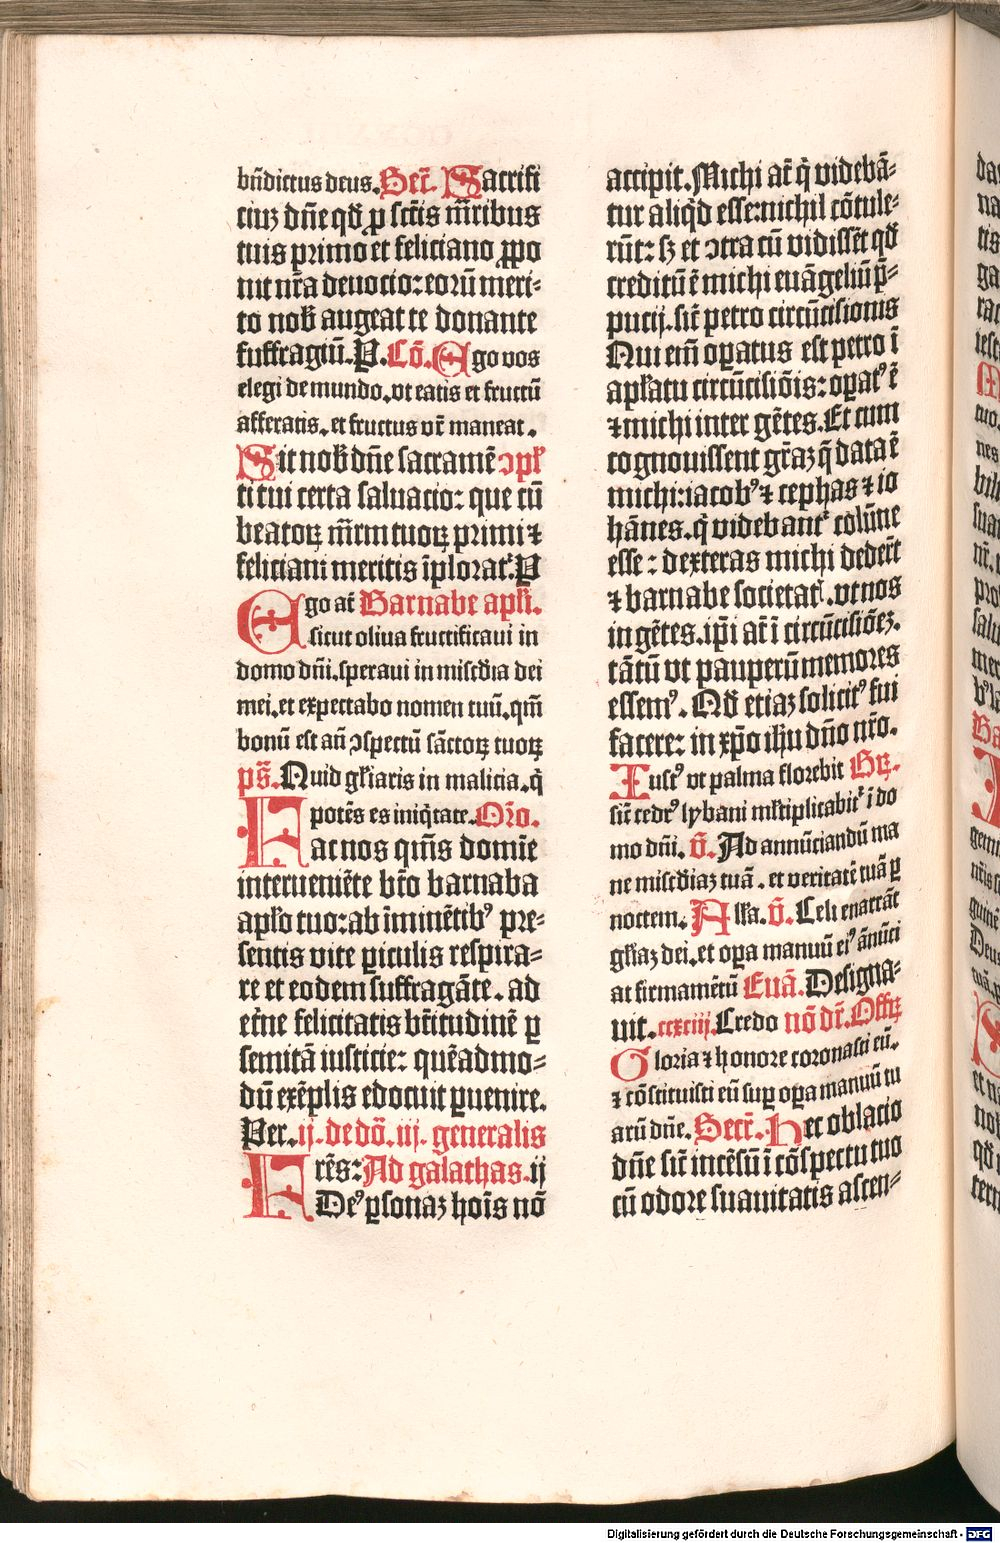 bn̄dictus deus. Secr̄. Sacrifi
ciuꝫ dn̄e qd̄ ꝓ sctīs m̄ribus
tuis primo et feliciano ꝓpo
nit nr̄a deuocio: eorū meri-
to nob̄ augeat te donante
suffragiū. P. Cō. Ego vos
elegi de mundo. vt eatis et fructū
afferatis. et fructus vr̄ maneat.
Sit nob̄ dn̄e sacramē ↄpł
ti tui certa saluacio: que cū
beatoꝝ m̄rm tuoꝝ primi ⁊
feliciani meritis īplorat᷑. P
Ego at̄ Barnabe apłi.
sicut oliua fructificaui in
domo dn̄i. speraui in mis̄cdia dei
mei. et expectabo nomen tuū. qm̄
bonū est an̄ ↄspectū sāctoꝝ tuoꝝ
ps̄. Quid głiaris in malicia. q̄
potēs es iniq̄tate. Oro̅.
Fac nos qm̄s domīe
interueniēte bt̄o barnaba
apło tuo: ab īminētib⁹ pre-
sentis vite ꝑiculis respira-
re et eodem suffragāte. ad
et̄ne felicitatis bt̄itudinē ꝑ
semitā iusticie: quēadmo-
dū exēplis edocuit ꝑuenire.
Per. ij. de dō. iij. generalis
Frēs: Ad galathas. ij
De⁹ ꝑsonaꝫ hoīs nō
accipit. Michi at̄ q̄ videbā-
tur aliqd̄ esse: nichil cōtule-
rūt: sꝫ et ↄtra cū vidissēt qd̄
creditū ē michi euāgeliū p̄-
pucij. sic̄ petro circūcisionis
Qui em̄ opatus est petro ī
apłatu circūcisiōis: opat⁹ ē
⁊ michi inter gētes. Et cum
cognouissent gr̄aꝫ q̄ data ē
michi: iacob⁹ ⁊ cephas ⁊ io
hānes. q̄ videbant᷑ colūne
esse: dexteras michi dedēt
⁊ barnabe societat̄. vt nos
in gētes. ip̄i at̄ ī circūcisiōeꝫ.
tātū vt pauperū memores
essem⁹. Qd̄ etiaꝫ solicit⁹ fui
facere: in xp̄o ih̄u dn̄o nr̄o.
Iust⁹ vt palma florebit Gꝝ.
sic̄ cedr⁹ lybani młtiplicabit᷑ ī do
mo dn̄i. v̄. Ad annūciandū ma
ne mis̄cdiaꝫ tuā. et veritatē tuā ꝑ
noctem. Alła. v̄. Celi enarrāt
głiaꝫ dei. et opa manuū ei⁹ ānūci
at firmamētū Euā. Designa-
uit. ccxciij. Credo nō dr̄. Offꝝ
Gloria ⁊ honore coronasti eū.
⁊ cōstituisti eū suꝑ opa manuū tu
arū dn̄e. Secr̄. Hec oblacio
dn̄e sic̄ incēsū ī cōspectu tuo
cū odore suauitatis ascen-
Digitalisierung gefördert durch die Deutsche Forschungsgemeinschaft - DFG